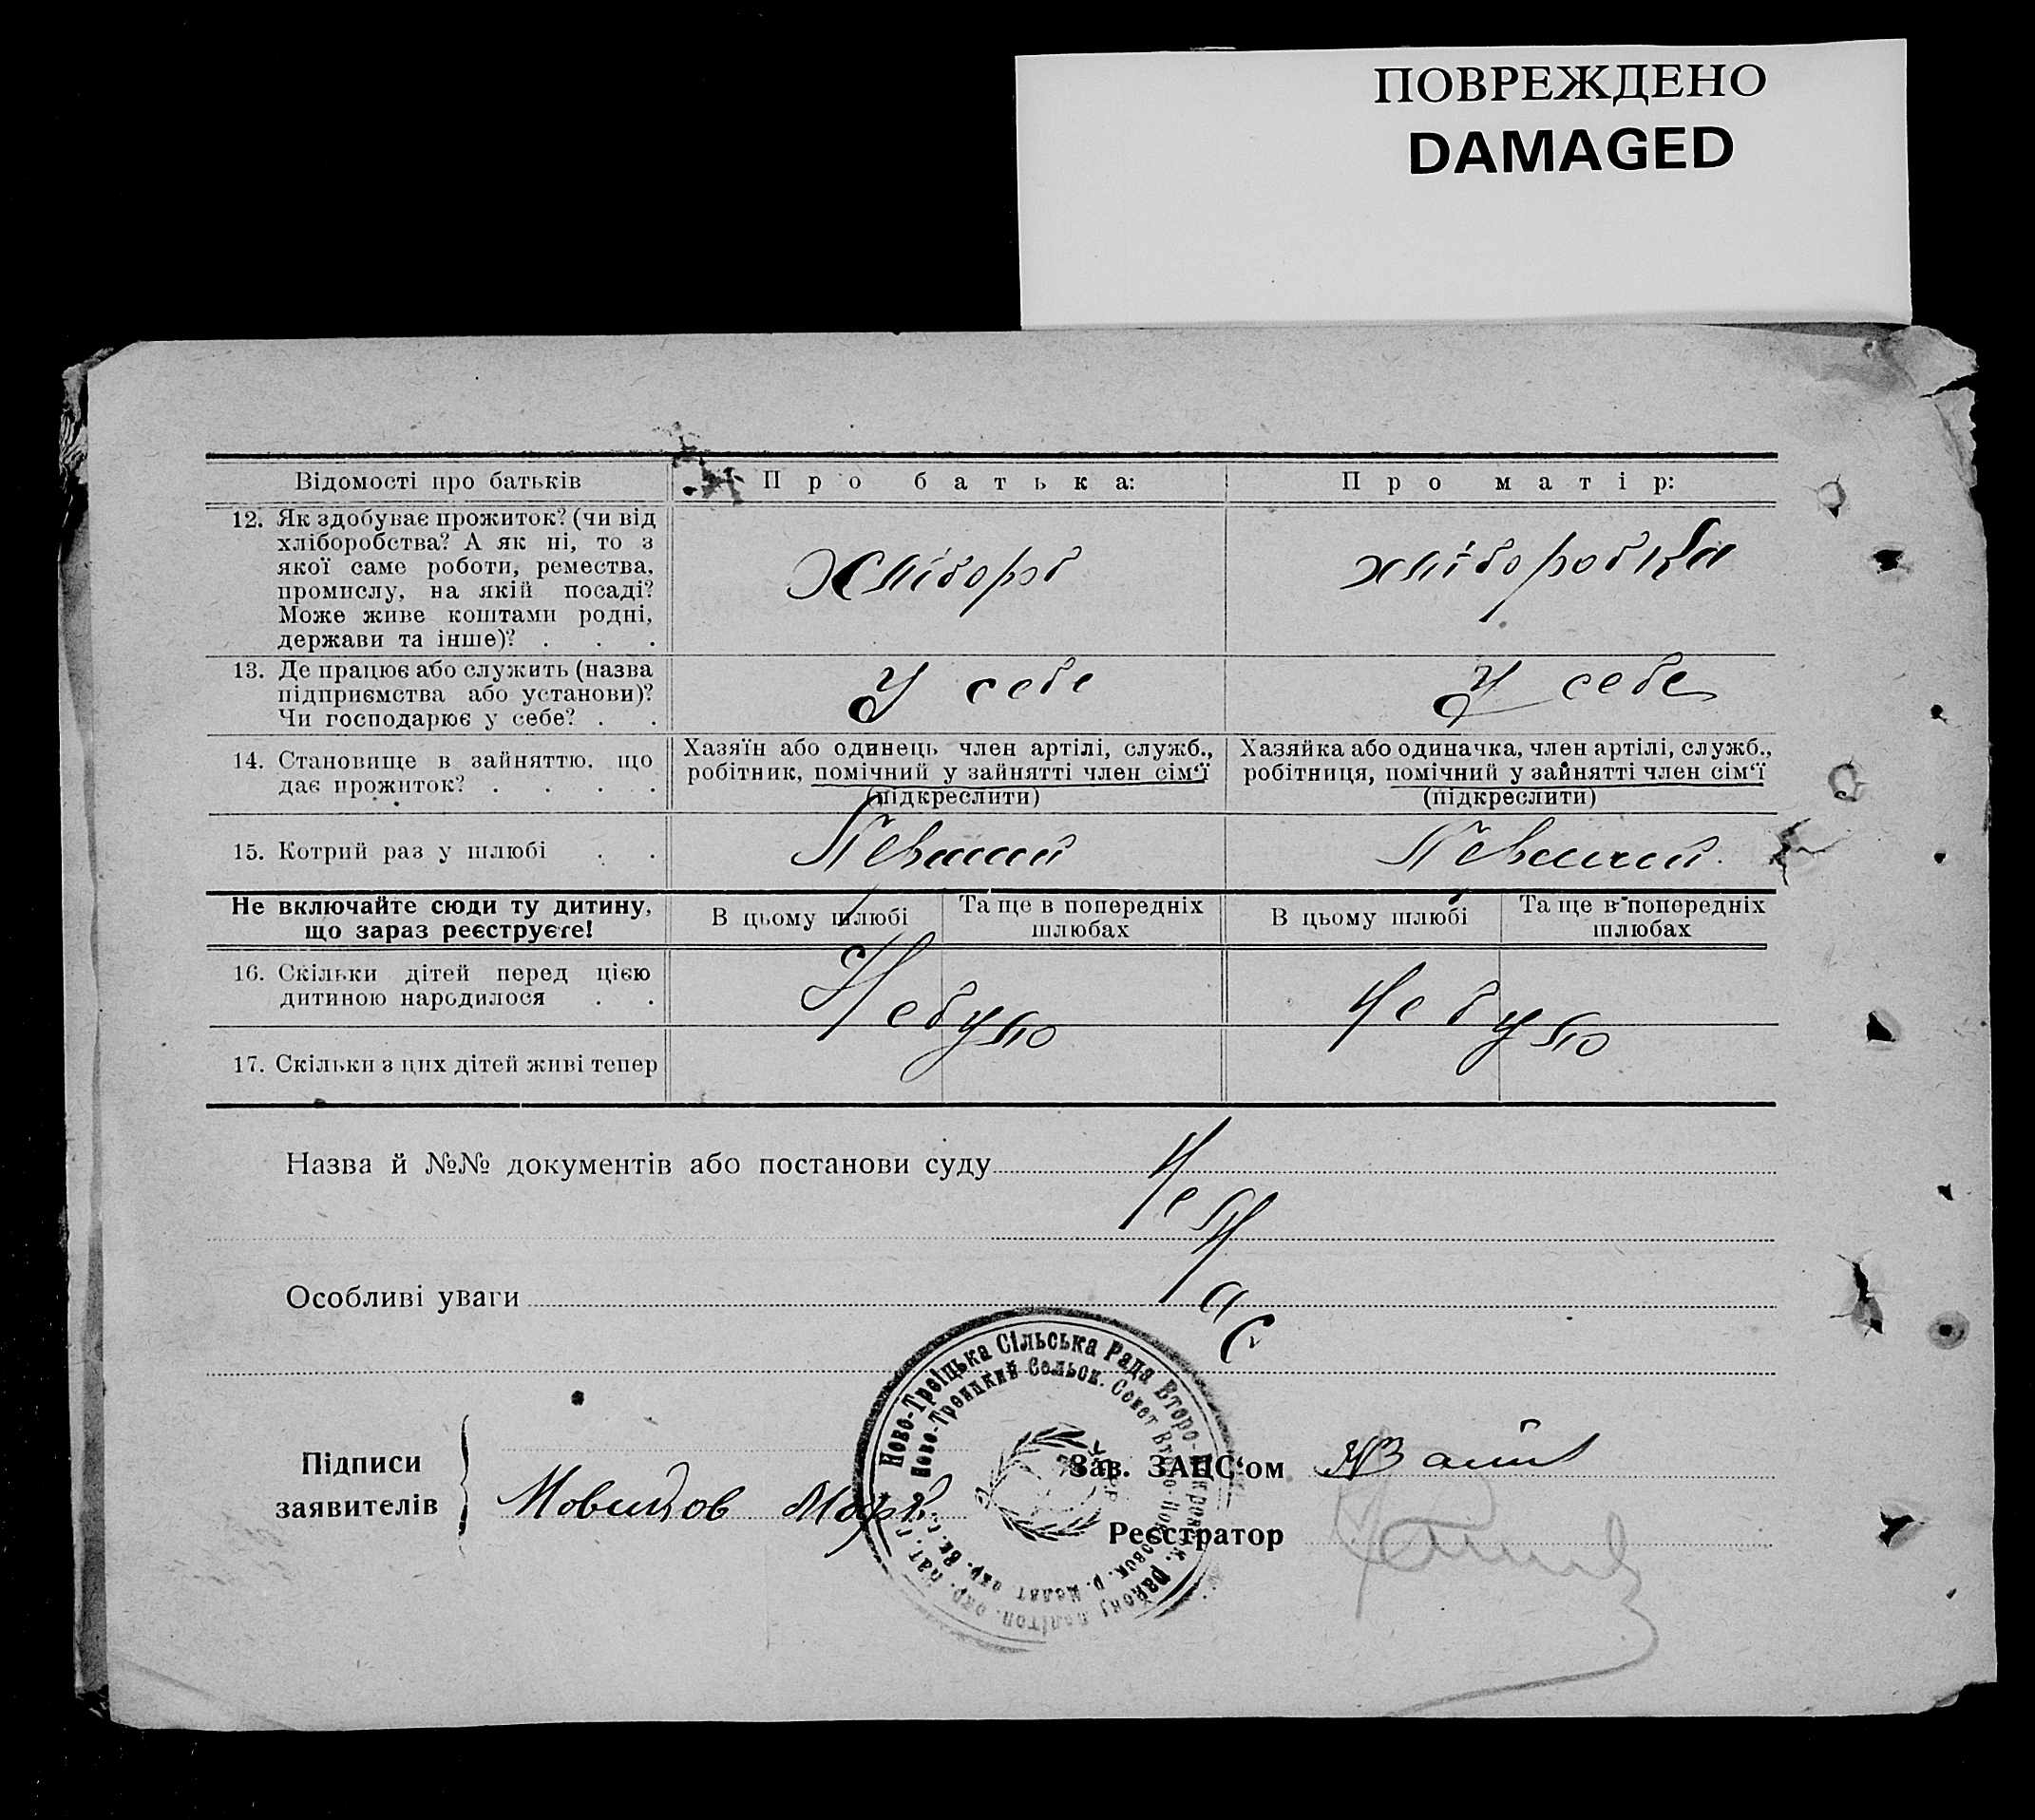 ПОВРЕЖДЕНО
DAMAGED
Відомості про батьків
Про батька:
Про матір:
12. Як здобуває прожиток? (чи від
хліборобства? А як ні, то з
якої саме роботи, ремества,
промислу, на якій посаді?
Може живе коштами родні,
держави та інше)? . . .
Хлібороб
хліборобка
13. Де працює або служить (назва
підприємства або установи)?
Чи господарює у себе? . .
У себе
У себе
14. Становище в зайняттю, що
дає прожиток? . . . .
Хазяїн або одинець член артілі, служб.,
робітник, помічний у зайнятті член сім‘ї
(підкреслити)
Хазяйка або одиначка, член артілі, служб.,
робітниця, помічний у зайнятті член сім‘ї
(підкреслити)
15. Котрий раз у шлюбі . .
Не включайте сюди ту дитину,
що зараз реєструєте!
В цьому шлюбі
Та ще в попередніх
шлюбах
В цьому шлюбі
Та ще в попередніх
шлюбах
16. Скільки дітей перед цією
дитиною народилося . .
Небуло
Небуло
17. Скільки з цих дітей живі тепер
Назва й №№ документів або постанови суду
Особливі уваги
Ново-Троїцька Сільська Рада Второ-Покровськ. району
Ново-Троицкий Сельск. Совет Второ-Покровск. р.
Підписи
заявителів
Зав. ЗАЦС‘ом
Реєстратор